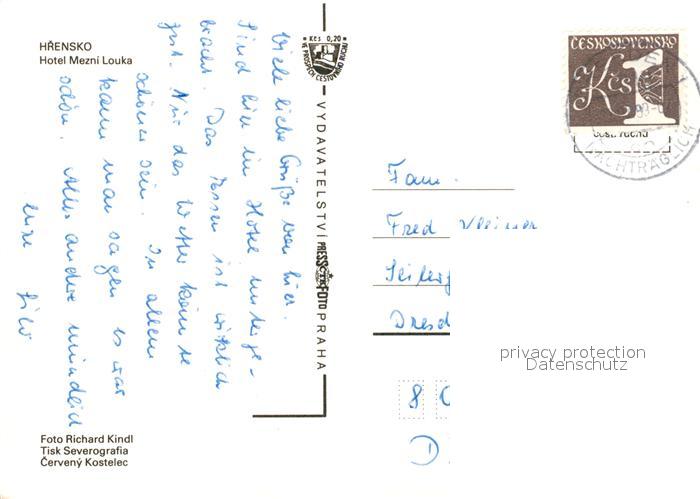 HŘENSKO
Hotel Mezní Louka
Viele liebe Grüße von hier.
Sind hier im Hotel unterge-
bracht. Das Essen ist wirklich
gut. Nur das Wetter könnte
schöner sein. In allem
kann man sagen es war
schön. Alles andere mündlich
eure
Foto Richard Kindl
Tisk Severografia
Červený Kostelec
Kčs 0,20
VE PROSPĚCH CESTOVNÍHO RUCHU
VYDAVATELSTVÍ PRESSFOTO PRAHA
ČESKOSLOVENSKO
Kčs 1
cest. ruchu
NACHTRÄGLICH
Fam.
Fred
Dresd
8
D
privacy protection
Datenschutz